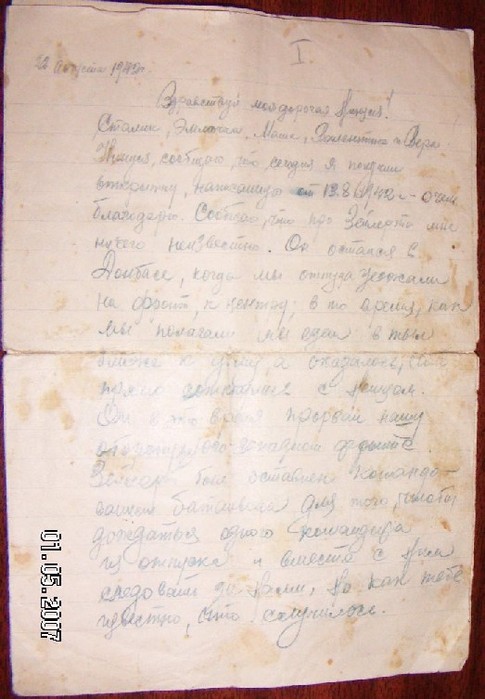 I
22 августа 1942г.
Здравствуй моя дорогая Нинуся!
Сталик, Маша, Валентина и Вера
Нинуся, сообщаю, что сегодня я получил
открытку, написанную от 19.8.1942г - очень
благодарю. Сообщаю, что про мне
ничего неизвестно. Он остался в
Донбасе, когда мы оттуда уезжали
на фронт, к центру, в то время, как
мы полагали мы едем в тыл
ближе к дому а оказалось,
прямо с немцам.
Он в это время прорвал нашу
оборону западном фронте.
был оставлен командо-
ванием батальона для того, чтобы
дождаться одного командира
из отпуска и вместе с ним
следовать за нами, но как тебе
известно, это случилось.
01.05.2007